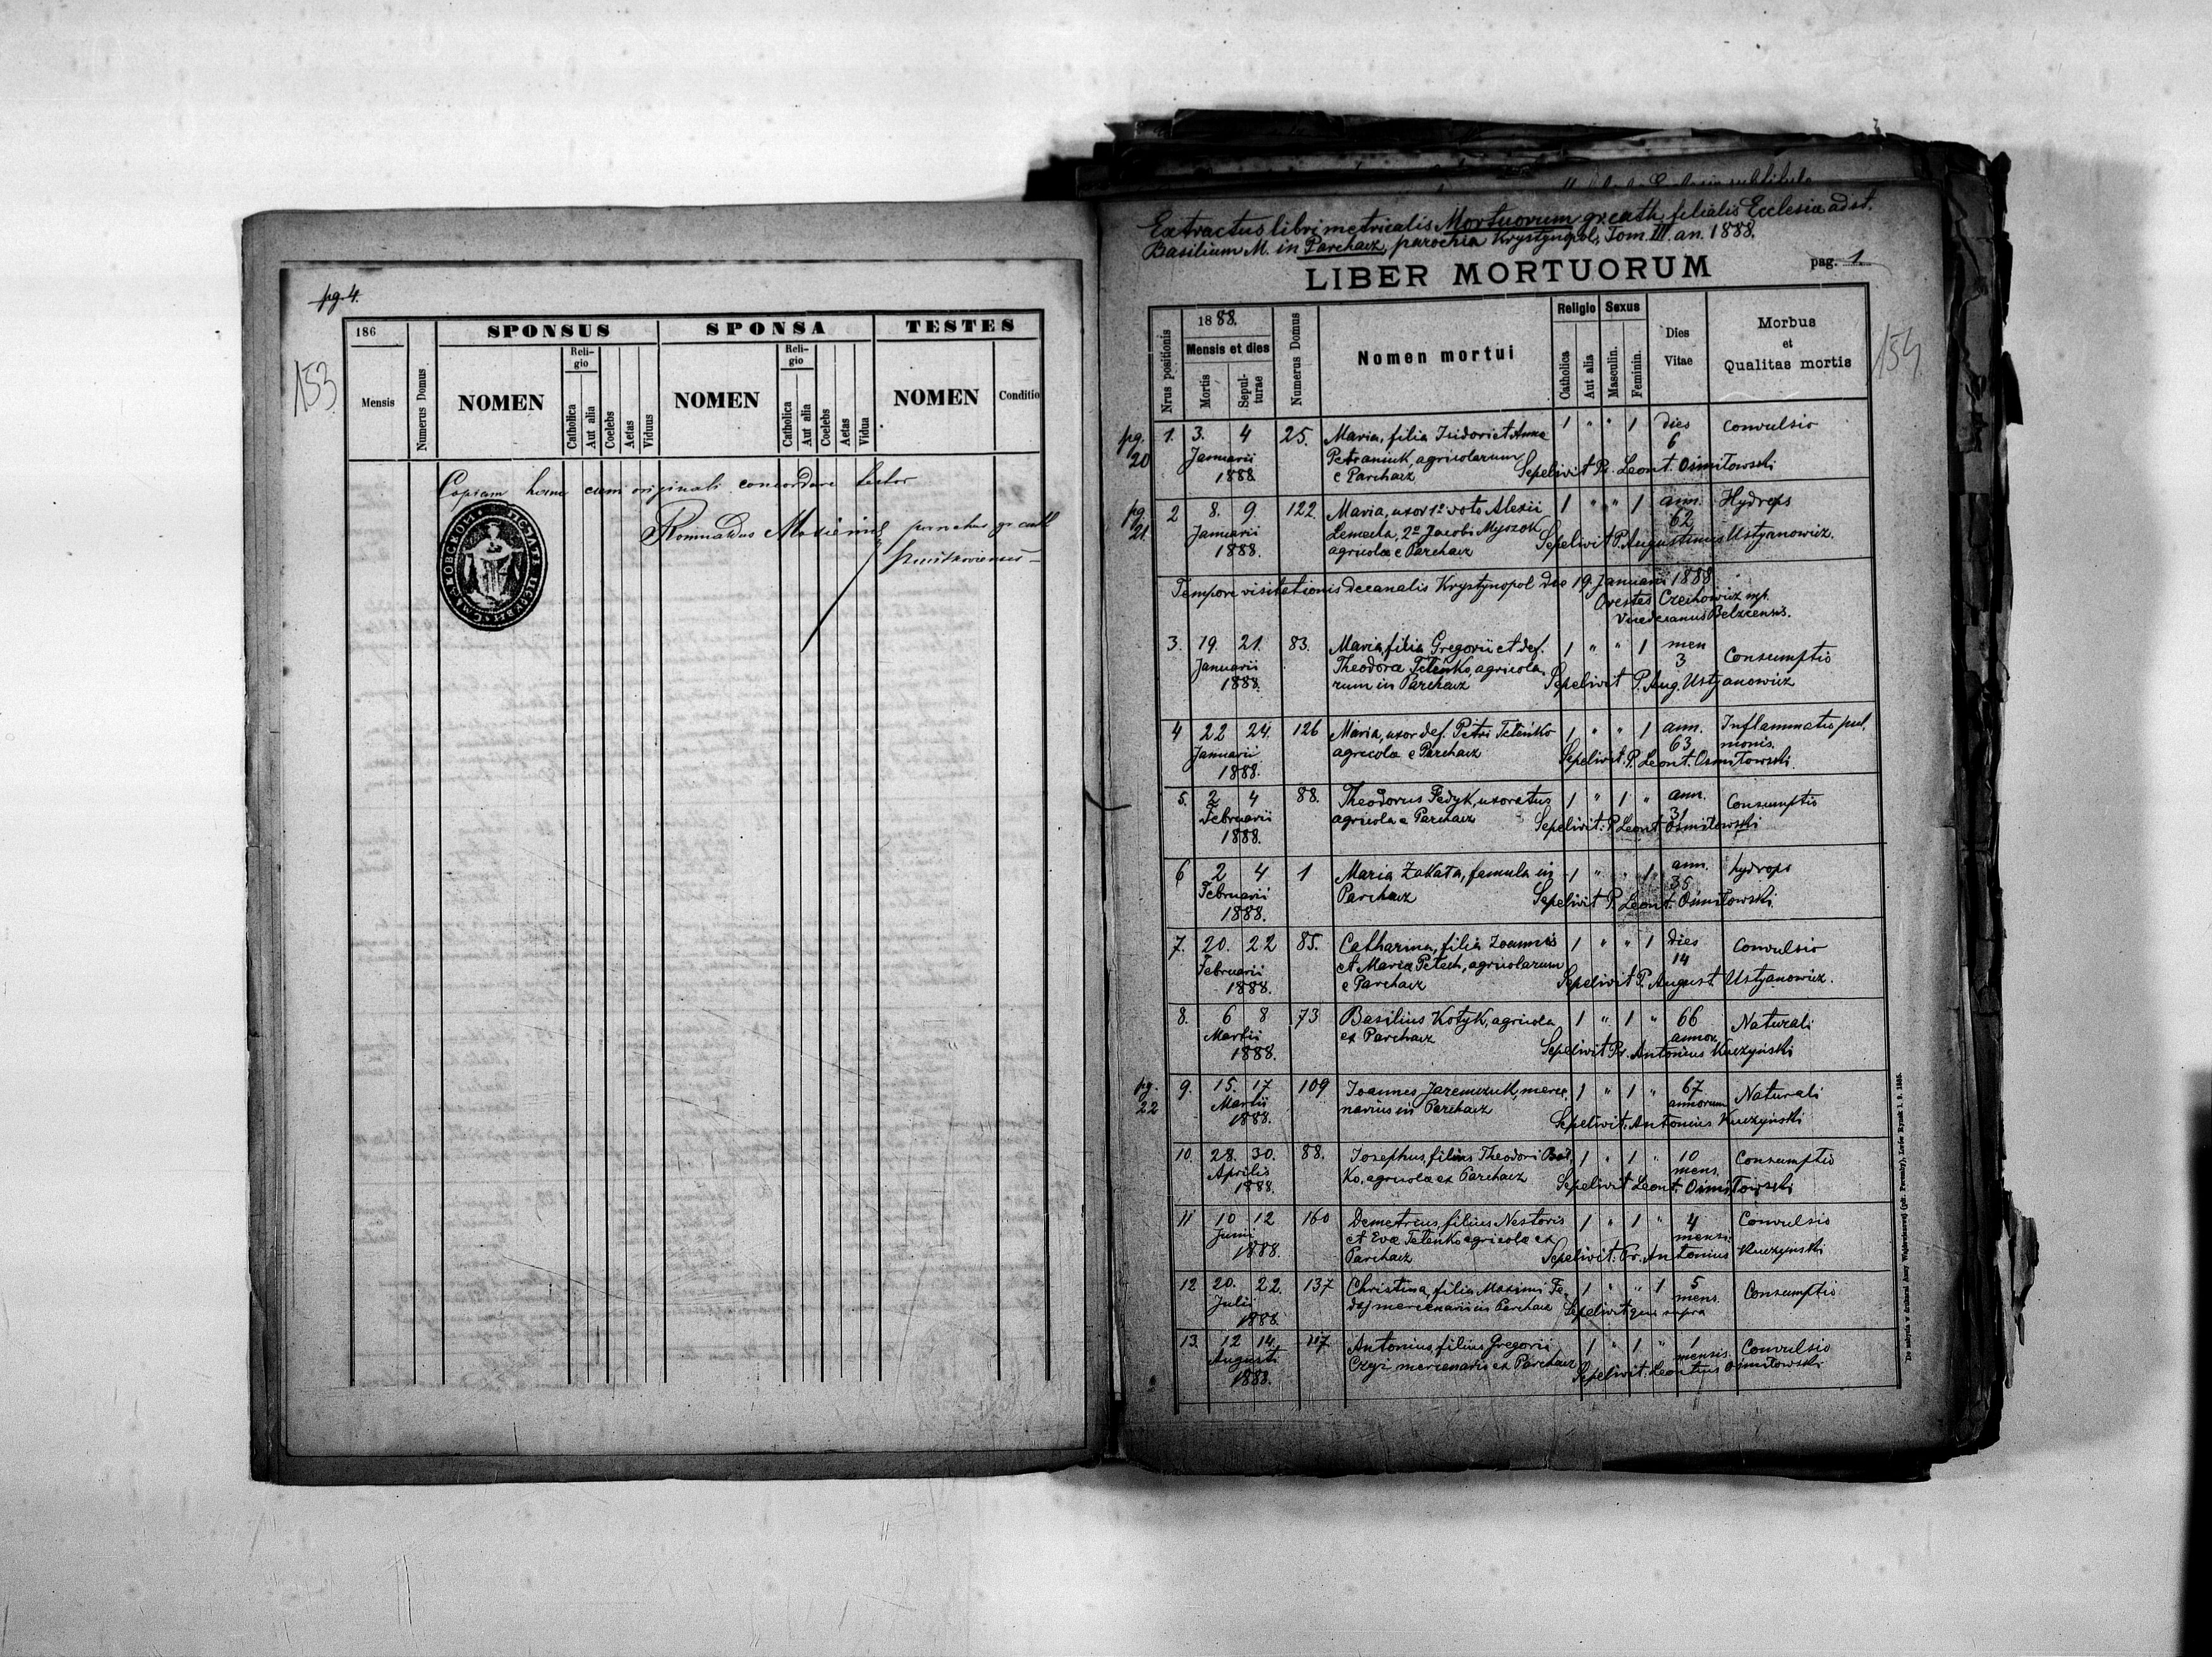 pg. 4.
153
186
Mensis
Numerus Domus
SPONSUS
NOMEN
Reli-
gio
Catholica
Aut alia
Coelebs
Aetas
Viduus
SPONSA
NOMEN
Reli-
gio
Catholica
Aut alia
Coelebs
Aetas
Vidua
TESTES
NOMEN
Conditio
Copiam hanc cum originali concordare testor
Romualdus parochus gr. cath.
Extractus libri metricalis Mortuorum gr. cath. filialis Ecclesiæ ad st.
Basilium M. in Parchacz, parochia Krystynopol, Tom. III. an. 1888.
LIBER MORTUORUM
pag. 1.
154
Nrus positionis
1888.
Mensis et dies
Mortis
Sepul-
turae
Numerus Domus
Nomen mortui
Religio
Catholica
Aut alia
Sexus
Masculin.
Feminin.
Dies
Vitae
Morbus
et
Qualitas mortis
pg. 20
1. 3. 4 25. Maria, filia Isidori et Annæ 1 " " 1 dies Convulsio
Januarii Petraniuk, agricolarum 6
1888 e Parchacz Sepelivit Pr. Leont. Ośmiłowski
pg. 21.
2 8. 9. 122. Maria, uxor 1º voto Alexii 1 " " 1 ann. Hydrops
Januarii Lemecha, 2º Jacobi Myszok 62
1888. agricolæ e Parchacz Sepelivit P. Augustinus Ustyanowicz.
Tempore visitationis decanalis Krystynopol die 19. Januarii 1888
Orestes Czechowicz mp.
Vicedecanus Belzensis.
3. 19. 21. 83. Maria, filia Gregorii et def. 1 " " 1 men Consumptio
Januarii Theodoræ Teteńko, agricola- 3
1888. rum in Parchacz Sepelivit P. Aug. Ustyanowicz
4 22 24. 126 Maria, uxor def. Petri Teteńko 1 " " 1 ann. Inflammatio pul-
Januarii agricola e Parchacz 63 monis.
1888. Sepelivit. P. Leont. Ośmiłowski.
5. 2 4 88. Theodorus Fedyk, uxoratus 1 " 1 " ann. Consumptio
Februarii agricola e Parchacz 31
1888. Sepelivit: P. Leont. Ośmiłowski
6 2 4 1 Maria Zakata, famula in 1 " " 1 ann. hydrops
Februarii Parchacz 35
1888. Sepelivit P. Leont. Ośmiłowski
7. 20. 22 85. Catharina, filia Ioannis 1 " " 1 dies Convulsio
Februarii et Maria Petech, agricolarum 14
1888. e Parchacz Sepelivit P. August. Ustyanowicz.
8. 6 8 73 Basilius Kotyk, agricola 1 " 1 " 66 Naturali
Martii ex Parchacz annor.
1888. Sepelivit Pr. Antonius Kuczyński
pg. 22
9. 15. 17 109 Ioannes Jaremczuk, merce- 1 " 1 " 67 Naturali
Martii narius in Parchacz annorum
1888. Sepelivit: Antonius Kuczyński
10. 28. 30. 88. Iosephus, filius Theodori 1 " 1 " 10 Consumptio
Aprilis ko, agricolæ ex Parchacz mens.
1888. Sepelivit Leont. Ośmiłowski
11 10 12 160 Demetrius, filius Nestoris 1 " 1 " 4 Convulsio
Junii et Evæ Teteńko agricolæ ex mens.
1888. Parchacz Sepelivit: Pr. Antonius Kuczyński
12 20. 22. 137 Christina, filia Maximi Fe- 1 " " 1 5 Consumptio
Julii mercenarii in Parchacz mens.
1888. Sepelivit qui supra
13. 12 14. 117 Antonius, filius Gregorii 1 " 1 " 1 Convulsio
Augusti mercenarii ex Parchacz mensis.
1888. Sepelivit: Leontius Ośmiłowski